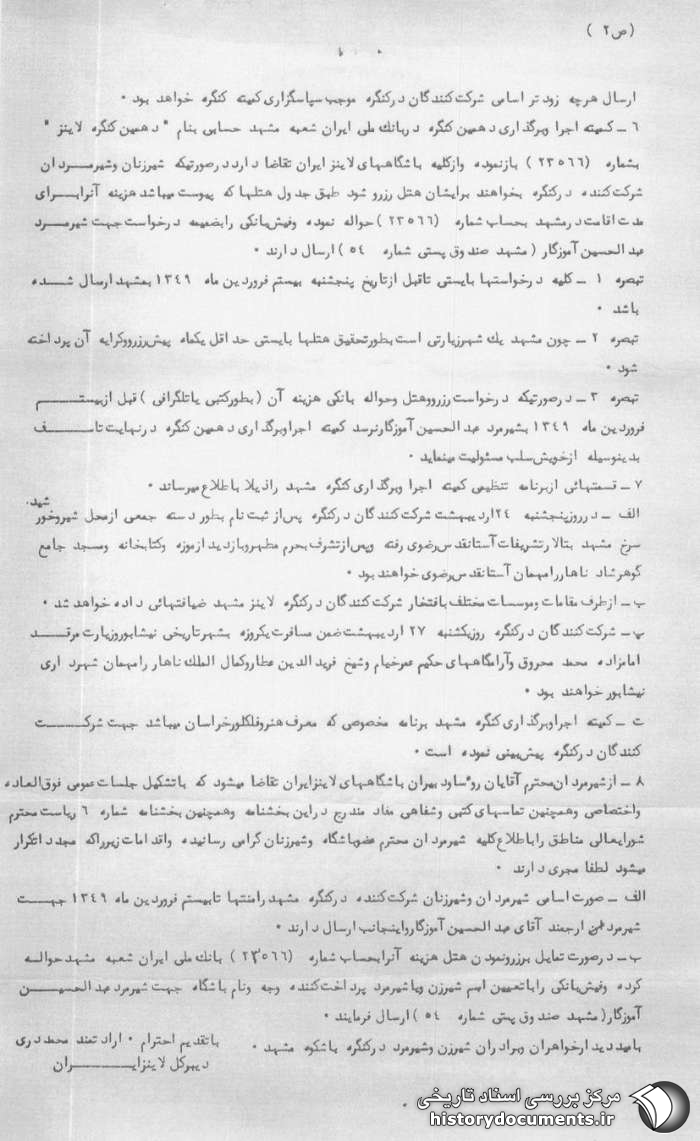 (ص ۲ )
ارسال هرچه زود تر اسامی شرکت کنندگان درکنگره موجب سپاسگزاری کمیته کنگره خواهد بود .
۶ ـ کمیته اجرا وبرگذاری دهمین کنگره دربانک ملی ایران شعبه مشهد حسابی بنام " دهمین کنگره لاینز "
بشماره (۲۳۵۶۶ ) بازنموده وازکلیه باشگاههای لاینز ایران تقاضا دارد درصورتیکه شیرزنان وشیرمردان
شرکت کننده درکنگره بخواهند برایشان هتل رزرو شود طبق جدول هتلها که پیوست میباشد هزینه آنرابرای
مدت اقامت درمشهد بحساب شماره (۲۳۵۶۶ ) حواله نموده وفیش بانکی رابضمیمه درخواست جهت شیرمرد
عبدالحسین آموزگار ( مشهد صندوق پستی شماره ۵۴ ) ارسال دارند .
تبصره ۱ ـ کلیه درخواستها بایستی تاقبل ازتاریخ پنجشنبه بیستم فروردین ماه ۱۳۴۹ بمشهد ارسال شده
باشد .
تبصره ۲ ـ چون مشهد یک شهرزیارتی است بطورتحقیق هتلها بایستی حداقل یکماه پیش رزرووکرایه آن پرداخته
شود .
تبصره ۳ ـ درصورتیکه درخواست رزرووهتل وحواله بانکی هزینه آن ( بطورکتبی یاتلگرافی ) قبل ازبیستم
فروردین ماه ۱۳۴۹ بشیرمرد عبدالحسین آموزگارنرسد کمیته اجراوبرگذاری دهمین کنگره درنهایت تاسف
بدینوسیله ازخویش سلب مسئولیت مینماید .
۷ ـ قسمتهائی ازبرنامه تنظیمی کمیته اجرا وبرگذاری کنگره مشهد راذیلا باطلاع میرساند .
الف ـ درروزپنجشنبه ۲۴اردیبهشت شرکت کنندگان درکنگره پس از ثبت نام بطور دسته جمعی ازمحل شیروخورشید
سرخ مشهد بتالارتشریفات آستانقدس رضوی رفته وپس ازتشرف بحرم مطهروبازدید ازموزه وکتابخانه ومسجد جامع
گوهرشاد ناهاررامهمان آستانقدس رضوی خواهند بود .
ب ـ ازطرف مقامات وموسسات مختلف بافتخار شرکت کنندگان درکنگره لاینز مشهد ضیافتهائی داده خواهد شد .
پ ـ شرکت کنندگان درکنگره روزیکشنبه ۲۷ اردیبهشت ضمن مسافرت یکروزه بشهرتاریخی نیشابوروزیارت مرقد
امامزاده محمد محروق وآرامگاههای حکیم عمرخیام وشیخ فریدالدین عطاروکمال الملک ناهار رامهمان شهرداری
نیشابور خواهند بود .
ت ـ کمیته اجراوبرگذاری کنگره مشهد برنامه مخصوصی که معرف هنروفلکلورخراسان میباشد جهت شرکت
کنندگان درکنگره پیش بینی نموده است .
۸ ـ ازشیرمردان محترم آقایان روساودبیران باشگاههای لاینزایران تقاضا میشود که باتشکیل جلسات عمومی فوق العاده
واختصاصی وهمچنین تماسهای کتبی وشفاهی مفاد مندرج دراین بخشنامه وهمچنین بخشنامه شماره ۶ ریاست محترم
شورایعالی مناطق راباطلاع کلیه شیرمردان محترم عضوباشگاه وشیرزنان گرامی رسانیده واقدامات زیرراکه مجدداتکرار
میشود لطفا مجری دارند .
الف ـ صورت اسامی شیرمردان وشیرزنان شرکت کننده درکنگره مشهد رامنتها تابیستم فروردین ماه ۱۳۴۹ جهت
شیرمرد ارجمند آقای عبدالحسین آموزگارواینجانب ارسال دارند .
ب ـ درصورت تمایل برزرونمودن هتل هزینه آنرابحساب شماره (۲۳۵۶۶ ) بانک ملی ایران شعبه مشهد حواله
کرده وفیش بانکی راباتعیین اسم شیرزن ویاشیرمرد پرداخت کننده وجه ونام باشگاه جهت شیرمرد عبدالحسین
آموزگار( مشهد صندوق پستی شماره ۵۴ ) ارسال فرمایند .
بامید دیدارخواهران وبرادران شیرزن وشیرمرد درکنگره باشکوه مشهد .
باتقدیم احترام . ارادتمند محمد دری
دبیرکل لاینزایران
مرکز بررسی اسناد تاریخی
historydocuments.ir